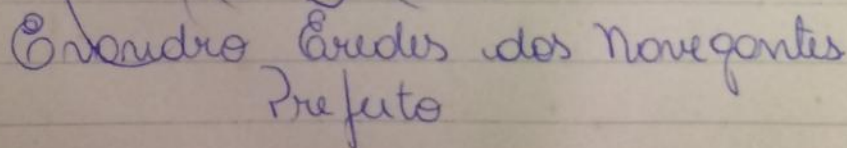 Evandro Eredes dos Navegantes
Prefeito